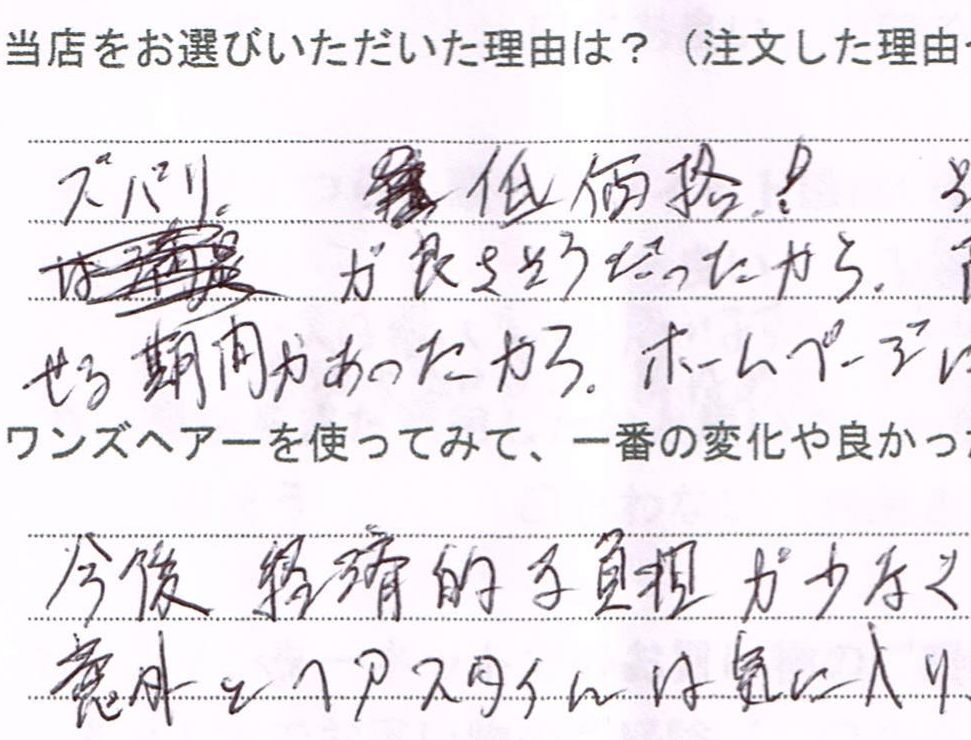 当店をお選びいただいた理由は？（注文した理由
ズバリ。 低価格！
は が良さそうだったから。
せる期間があったから。ホームページに
ワンズヘアーを使ってみて、一番の変化や良かっ
今後 経済的な負担が少なく
意外とヘアスタイルは気に入り